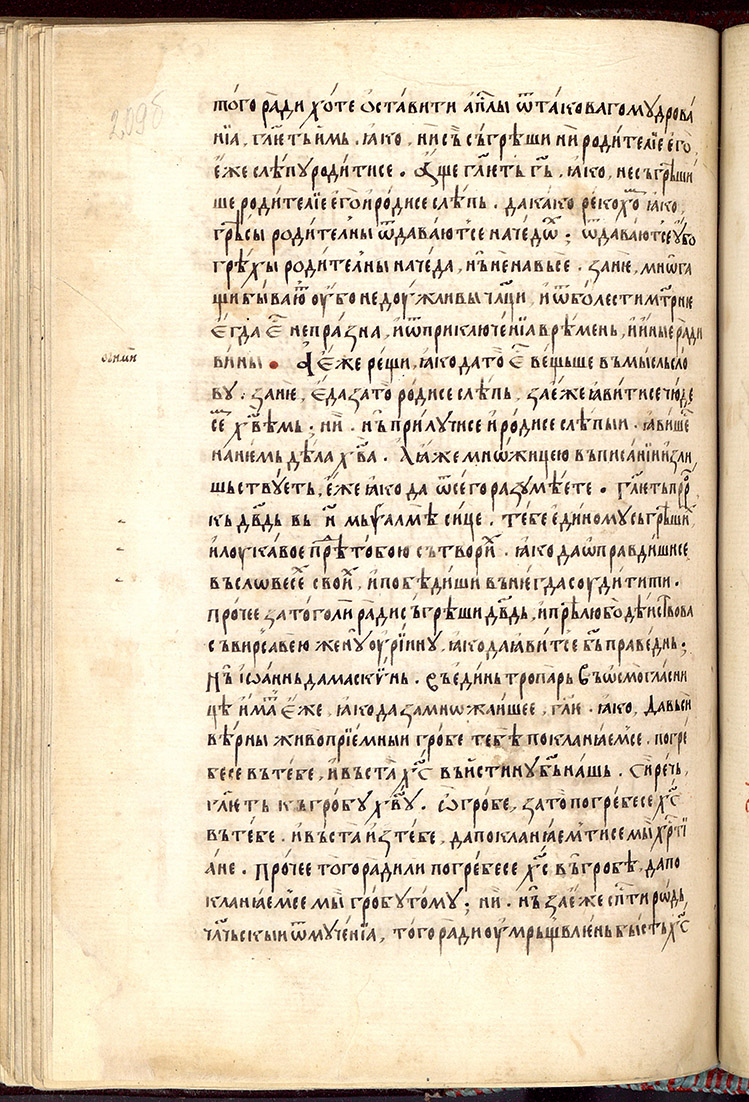 209б
того ради хоте оставити ап҃лы ѿ таковаго мудрова
нїа, гл҃еть имь. ꙗко, ни съ съгрѣши ни родителїе его
еже слѣпу родитисе. Аще гл҃еть г҃ь, ꙗко, не съгрѣши
ше родителїе его и родисе слѣпь. да како рекохѡⷨ ꙗко,
грѣсы родителны ѿдаваютсе на чедѡⷯ; ѿдаваютсе убо
грѣхы родителны на чеда, нь не на вьсе. зание, мнѡга
щи бываюⷮ оубо недоужливы чл҃ци, и ѿ болести мт҃рние
егда еⷭ непразна, и ѿ приключенїа врѣмень, и иные ради
вины. А еже рещи, ꙗко да то еⷭ вещьше въ мысль сло
ву. зание, еда за то родисе слѣпь, за еже ꙗвитисе чюде
се хв҃ѣмь; ни. нь прилучисе и родисе слѣпыи. ꙗвише
на немь дѣла хв҃а. Ꙗ же мнѡжицею въ писании изли
шьствуеть, еже ꙗко да ѿ сего разумѣете. гл҃еть прⷪрⷪ
кь дв҃дь вь н҃ мь ѱалмѣ сице. тебе единому съгрѣшиⷯ
и лоукавое прѣⷣ тобою сътвориⷯ. ꙗко да ѡправдишисе
въ словесеⷯ своиⷯ, и побѣдиши вънегда соудити ти.
прочее за то голи ради съгрѣши дв҃дь, и прѣлюбодѣиствова
съ вирсавею жену оурїину, ꙗко да ꙗвитсе б҃ь праведнь;
Нь іѡаннь дамаскинь. въ единь тропарь въ ѡсмогласни
цѣ имаⷮ еже, ꙗко да за мнѡжаишее, гл҃и. ꙗко, Давьси
вѣрны живопрїемныи гробе тебѣ покланꙗемсе. погре
бесе въ тебе, и въста хⷭ въистину б҃ь нашь. Сирѣчь,
гл҃еть къ гробу хв҃у. ѡ гробе, за то погребесе хⷭ
въ тебе. и въста из тебе, да покланꙗем ти се мы хрⷭтї
ане. прочее того ради ли погребесе хⷭ въ гробѣ, да по
кланꙗемсе мы гробу тому; ни. нь за еже сп҃сти рѡдь
чл҃чьскыи ѿ мученїа, того ради оумрьщвлень бысть хⷭ